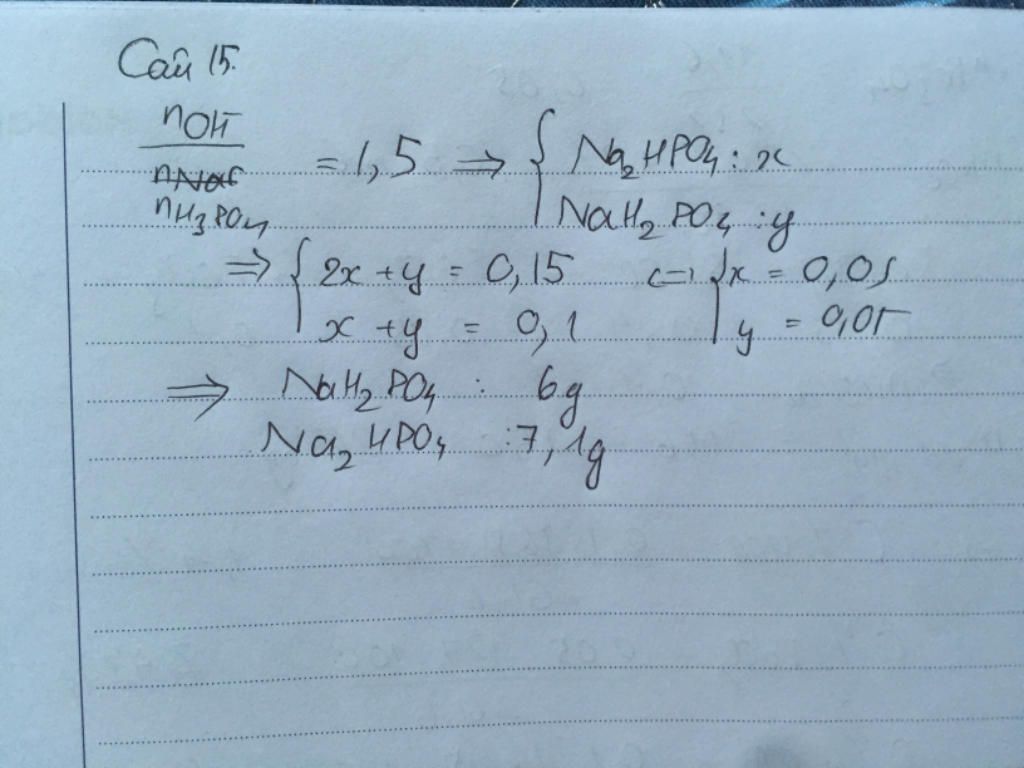 Câu 15.
nOH⁻ / n̶N̶a̶C̶ nH₃PO₄ = 1,5 ⇒ { Na₂HPO₄ : x
NaH₂PO₄ : y
⇒ { 2x + y = 0,15 <=> { x = 0,05
x + y = 0,1 y = 0,05
⇒ NaH₂PO₄ : 6g
Na₂HPO₄ : 7,1g